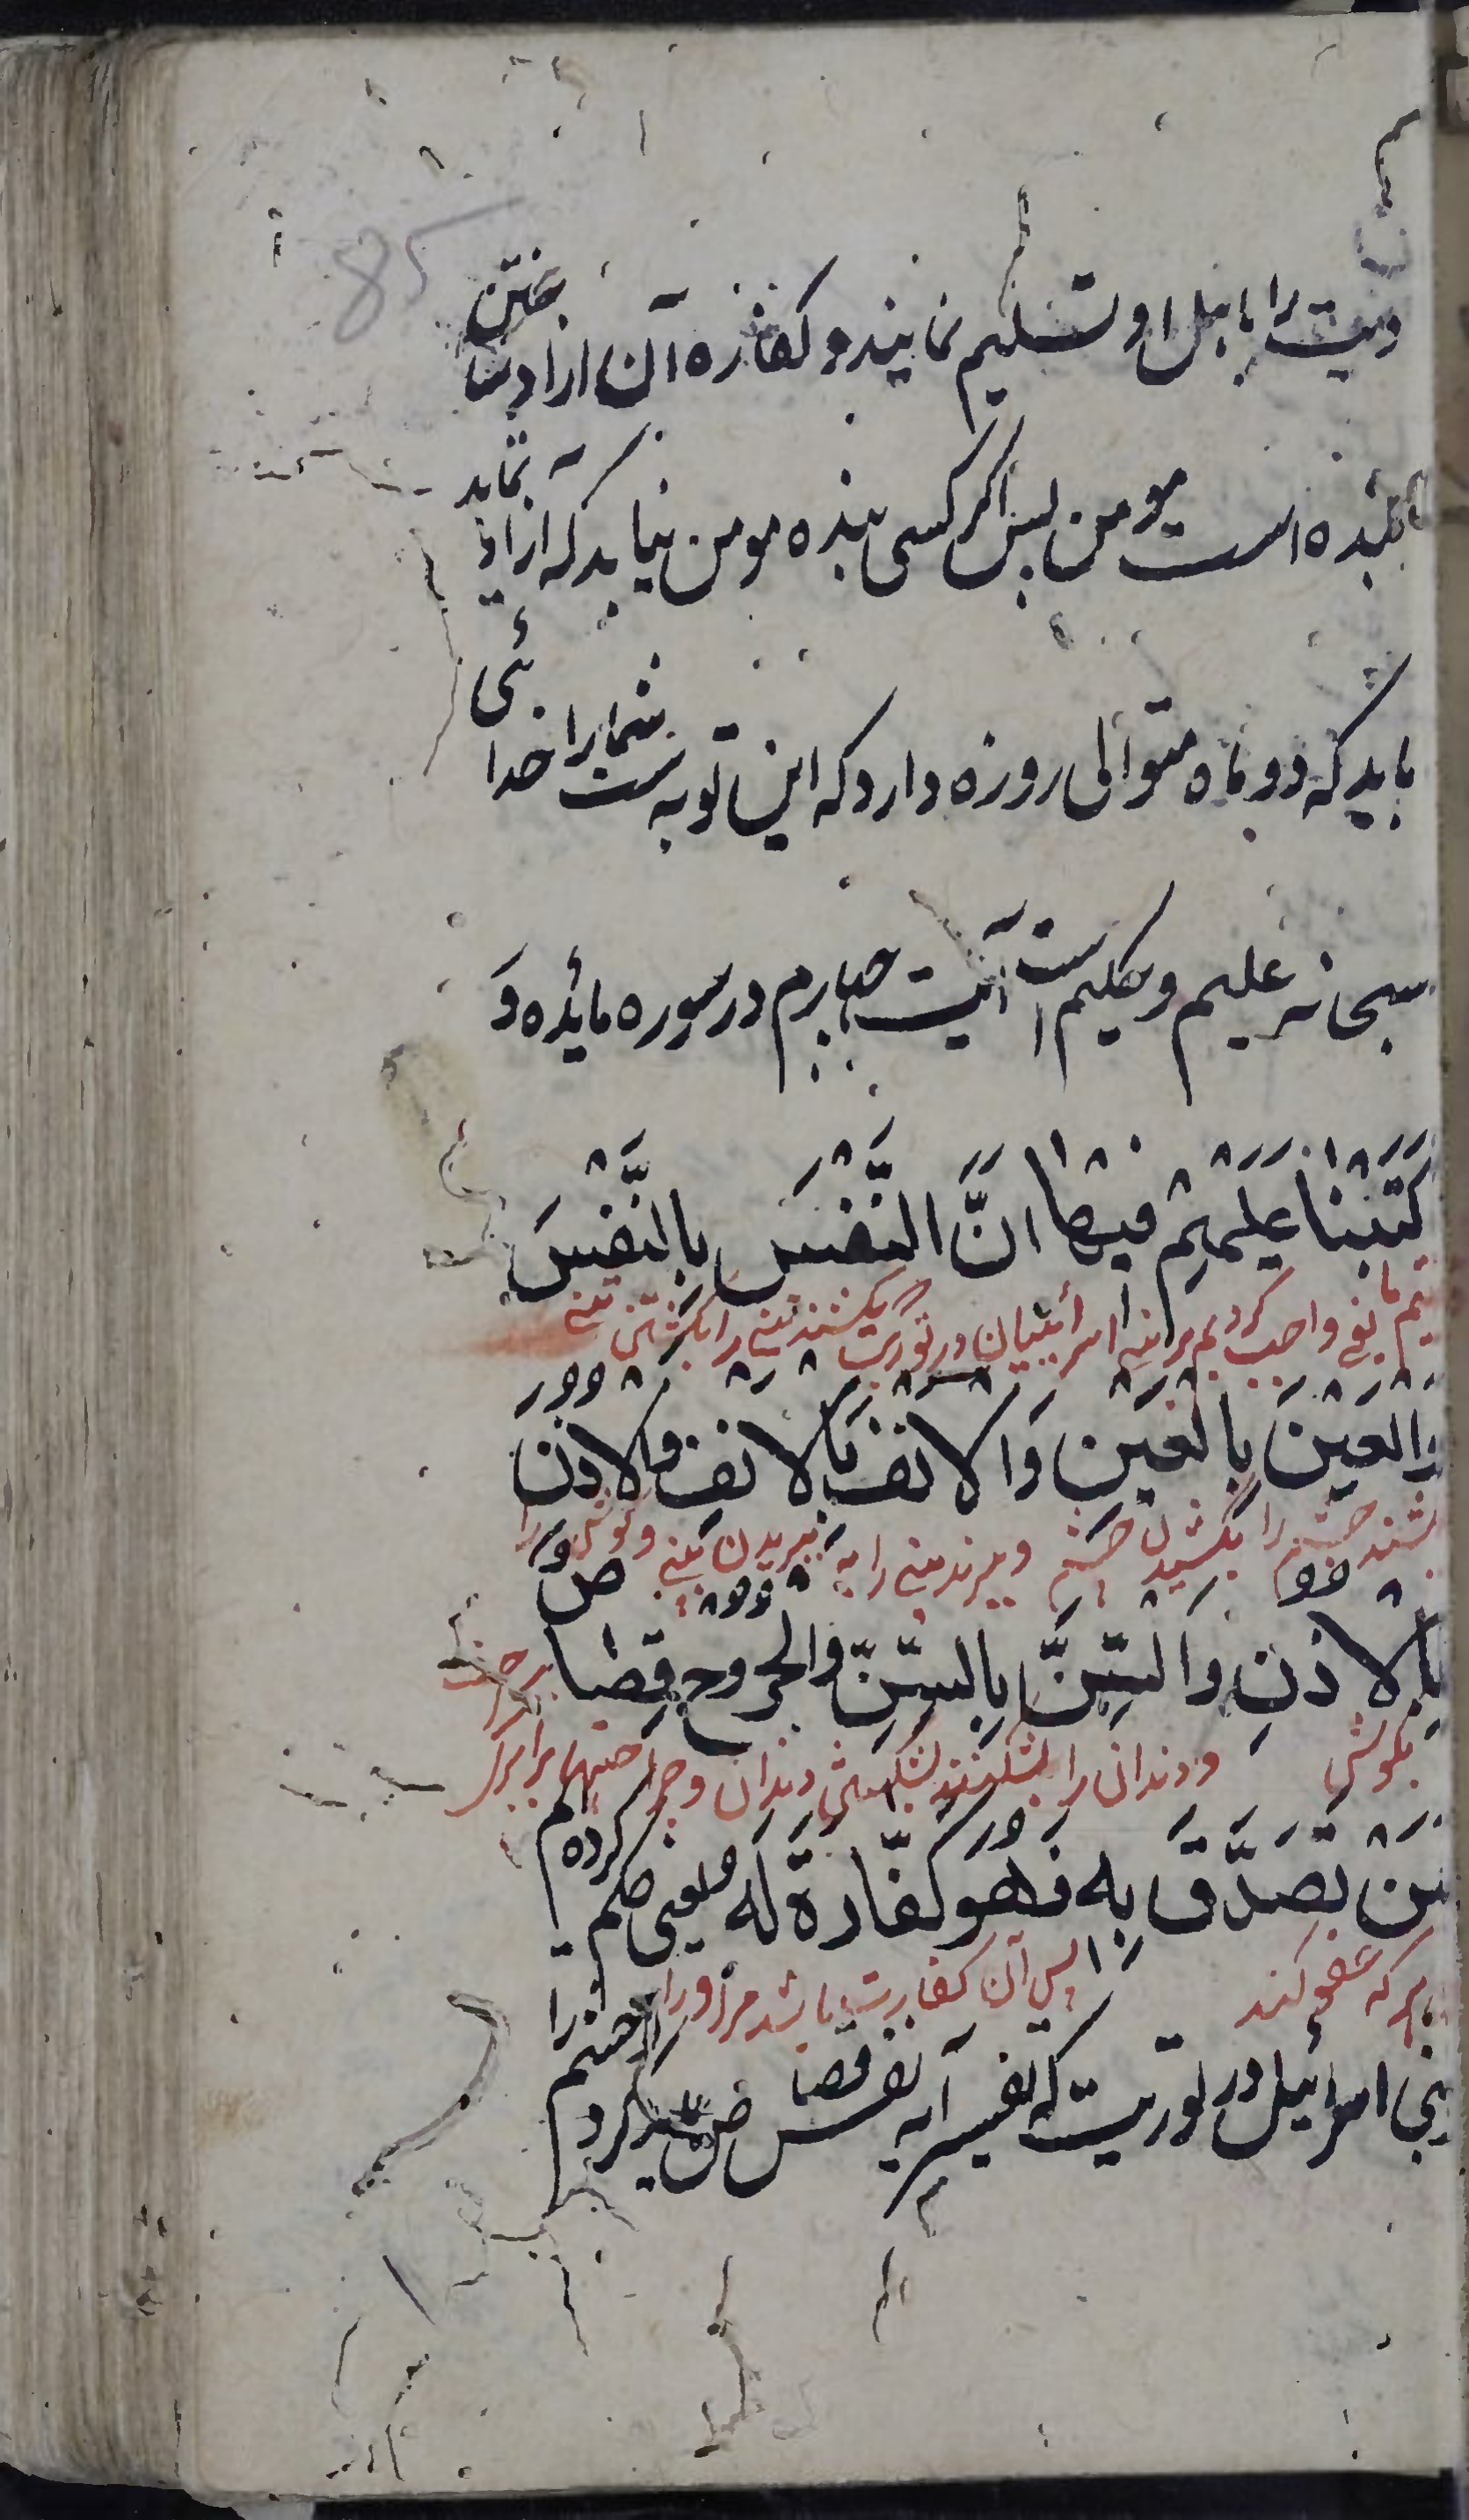 85
دیت را باهل او تسلیم نمایند و کفاره آن ازاد ساختن
بنده است مومن پس اگر کسی بنده مومن نیابد که ازاد نماید
باید که دو ماه متوالی روزه دارد که این توبه ست شما را خدا ئی
سبحانه علیم و حکیم است آیت چهارم در سوره مائده وَ
كَتَبْنَا عَلَيْهِمْ فِيهَا انَّ النَّفْسَ بِالنَّفْسِ
یعنی واجب کردیم بر بنی اسرائیلیان در توریت که بکشند تنی را بکشتن تنی
وَالعَيْنَ بِالْعَيْنِ وَالانْفَ بِالانْفِ وَالاذُنَ
چشم را بکشیدن چشم و ببرند بینی را به ببریدن بینی و گوش را
بِالاذُنِ وَالسِّنَّ بِالسِّنِّ وَالجُرُوحَ قِصَاصٌ
بگوش و دندان را بشکنند بشکستن دندان و جراحتها برابر
مَنْ تَصَدَّقَ بِهِ فَهُوَ كَفَّارَةٌ لَهُ یعنی حکم کرده ام
هر که عفو کند پس آن کفارت باشد مر او را
بنی اسرائیل در توریت که نفس آیه نفس قصاص کرد چشم را